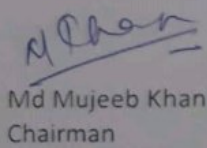 M Khan
Md Mujeeb Khan
Chairman